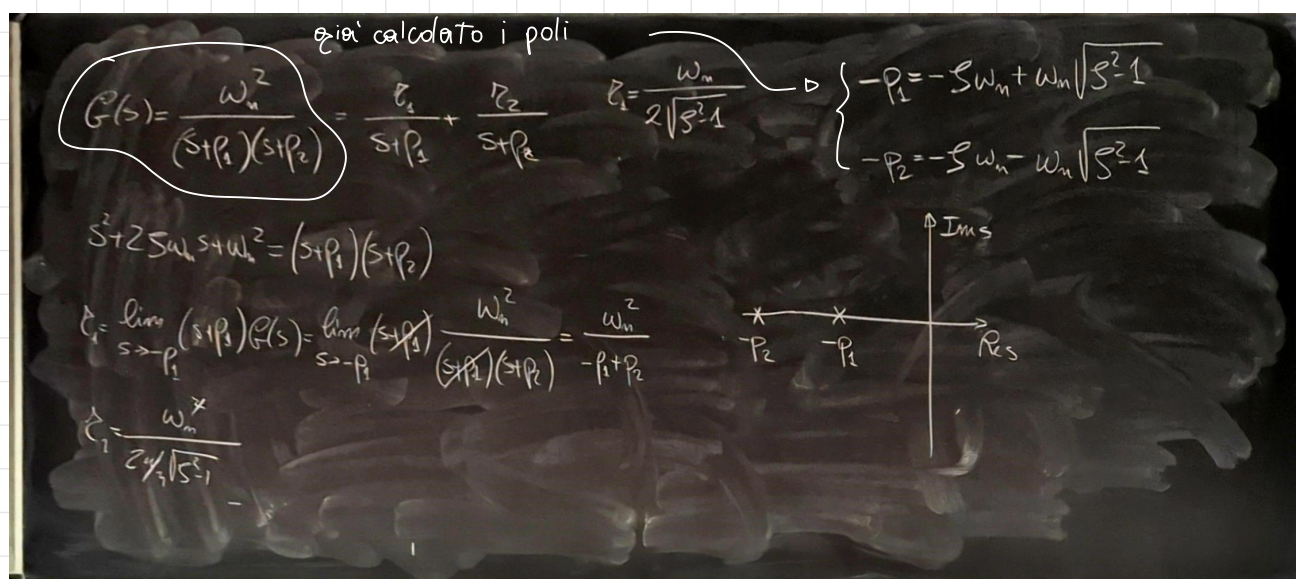 già calcolato i poli
G(s)= ωn² / (s+p1)(s+p2) = r1 / s+p1 + r2 / s+p2   r1= ωn / 2√ζ²-1   { -p1=-ζωn+ωn√ζ²-1
-p2=-ζωn-ωn√ζ²-1
s²+2ζωns+ωn²=(s+p1)(s+p2)
Ims
r1= lim s→-p1 (s+p1)G(s)= lim s→-p1 (s+p1) ωn² / (s+p1)(s+p2) = ωn² / -p1+p2
-p2 -p1 Res
r1= ωn² / 2ωn√ζ²-1